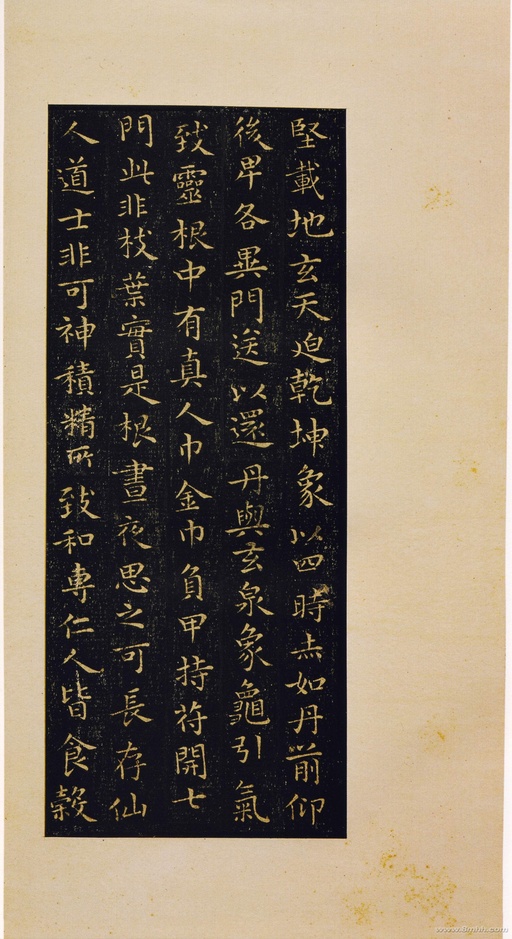 堅載地玄天迫乾坤象以四時赤如丹前仰
後卑各異門送以還丹與玄泉象龜引氣
致靈根中有真人巾金巾負甲持符開七
門此非枝葉實是根晝夜思之可長存仙
人道士非可神積精所致和專仁人皆食穀